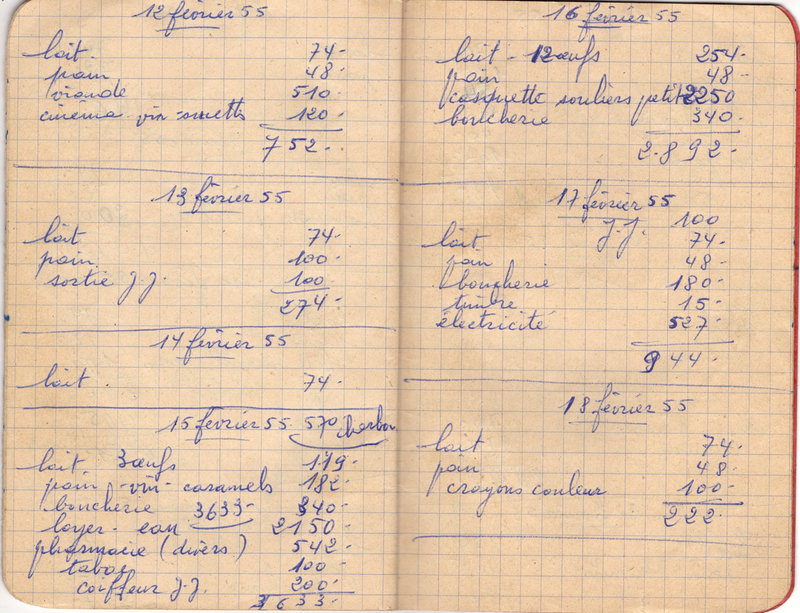 12 février 55
lait. 74-
pain 48-
viande 510-
cinéma vin 120-
752-
13 février 55
lait 74-
pain 100-
sortie J.J. 100-
274-
14 février 55
lait. 74-
15 février 55. 570 charbon
lait 3 œufs 119-
pain - vin - caramels 182-
boucherie 3633- 340-
loyer - eau 2150-
pharmacie (divers) 542-
tabac 100-
coiffeur J.J. 200-
3633-
16 février 55
lait - 12 œufs 254-
pain 48-
casquette souliers petit 2250
boucherie 340-
2.892-
17 février 55
J.J. 100
lait 74-
pain 48-
boucherie 180-
timbre 15-
électricité 527-
944-
18 février 55
lait 74-
pain 48-
crayons couleur 100-
222-